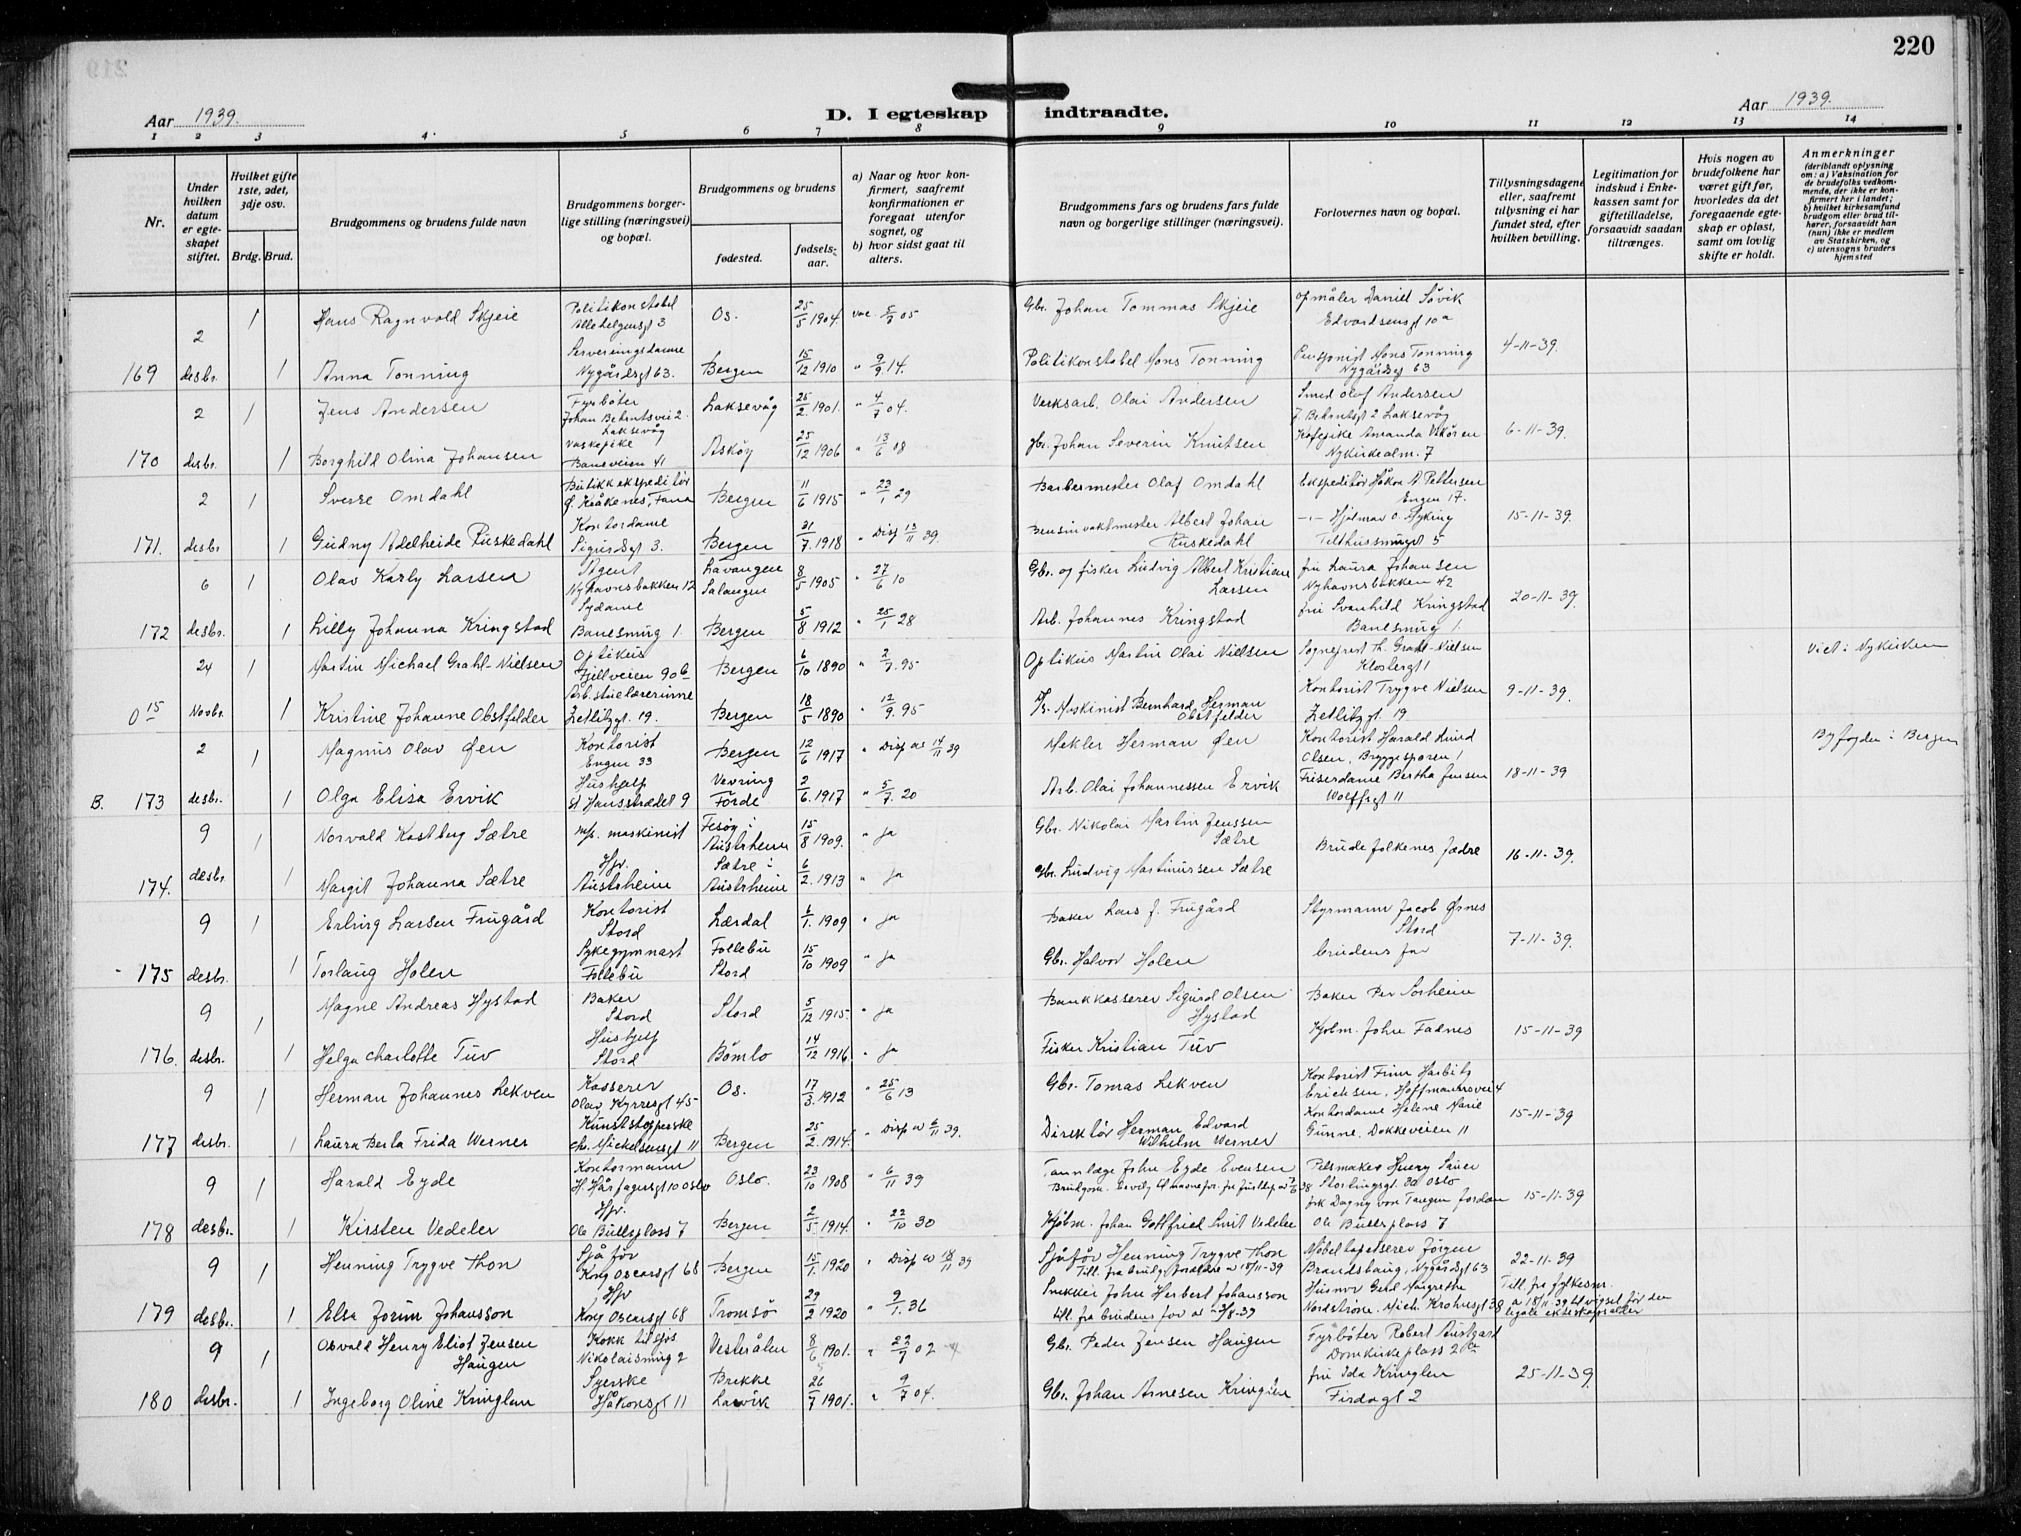 220
Aar 1939.
D. I egteskap indtraadte.
Aar 1939.
1 2 3 4 5 6 7 8 9 10 11 12 13 14
Nr.
Under hvilken datum er egteskapet stiftet.
Hvilket gifte 1ste, 2det, 3dje osv.
Brdg. Brud.
Brudgommens og brudens fulde navn
Brudgommens borgerlige stilling (næringsvei) og bopæl.
Brudgommens og brudens
fødested.
fødselsaar.
a) Naar og hvor konfirmert, saafremt konfirmationen er foregaat utenfor sognet, og
b) hvor sidst gaat til alters.
Brudgommens fars og brudens fars fulde navn og borgerlige stillinger (næringsvei).
Forlovernes navn og bopæl.
Tillysningsdagene eller, saafremt tillysning ei har fundet sted, efter hvilken bevilling.
Legitimation for indskud i Enkekassen samt for giftetilladelse, forsaavidt saadan tiltrænges.
Hvis nogen av brudefolkene har været gift før, hvorledes da det foregaaende egteskap er opløst, samt om lovlig skifte er holdt.
Anmerkninger
(deriblandt oplysning om: a) Vaksination for de brudefolks vedkommende, der ikke er konfirmert her i landet;
b) hvilket kirkesamfund brudgom eller brud tilhører, forsaavidt han (hun) ikke er medlem av Statskirken, og
c) utensogns bruders hjemsted
2 1 Hans Ragnvald Skjeie Politikonstabel Allehelgensgt 3 Os. 25/5 1904. vac. 5/7 05 Gbr. Johan Tommas Skjeie opmåler Daniel Søvik Edvardsensgt 10a
169 desbr. 1 Anna Tonning Serveringsdame Nygårdsgt 63. Bergen 15/12 1910 " 9/9 14. Politikonstabel Mons Tonning Pensjonist Mons Tonning Nygårdsgt 63 4-11-39.
2 1 Jens Andersen Fyrbøter Johan Behrntsvei 2 Laksevåg Laksevåg 25/2 1901. " 4/7 04. Verksarb. Olai Andersen Smed Olaf Andersen J. Behrntsgt 2 Laksevåg
170 desbr. 1 Borghild Olina Johansen Vaskepike Baneveien 41 Askøy 25/12 1906 " 13/6 08 Gbr. Johan Severin Knutsen Kafepike Amanda Vikøren Nykirkealm. 7 6-11-39.
2 1 Sverre Omdahl Butikkekspeditør Ø. Kråkenes, Fana Bergen 11/6 1915 " 23/1 29 Barbermester Olaf Omdahl Ekspeditør Håkon A Pettersen Engen 17.
171. desbr 1 Gudny Adelheide Puskedahl Kontordame Sigurdsgt 3. Bergen 21/7 1918 " Disp 13/11 39. Bensinvaktmester Albert Johan Puskedahl -"- Hjalmar O. Myking Tilthussmuget 5 15-11-39.
6 1 Olav Karly Larsen Agent Nyhavnsbakken 12 Lavangen Salangen 8/5 1905 " 27/6 10 Gbr. og fisker Ludvig Albert Kristian Larsen fru Laura Johansen Nyhavnsbakken 42
172 desbr. 1 Lilly Johanna Kringstad Sydame Banesmug 1. Bergen 5/8 1912 " 25/1 28 Arb. Johannes Kringstad fru Svanhild Kringstad Banesmug 1. 20-11-39.
24 1 Martin Michael Grahl-Nielsen Optikus Fjellveien 90b Bergen 6/10 1890 " 2/7. 95 Optikus Martin Olai Nielsen Sogneprest Th. Grahl-Nielsen Klostergt 1 Viet i Nykirken
0 15 Novbr. 1 Kristine Johanne Obstfelder Arb.stuelærerinne Zetlitzgt. 19. Bergen 18/5 1890 " 12/9. 95 D/S. Maskinist Bernhard Herman Obstfelder Kontorist Trygve Nielsen Zetlitzgt. 19 9-11-39.
2 1 Magnus Olav Øen Kontorist Engen 33 Bergen 12/6 1917 " Disp av 14/11 39 Mekler Herman Øen Kontorist Harald Lund Olsen, Bryggesporen 1 Byfogden i Bergen
B. 173 desbr. 1 Olga Elisa Ervik Hushjelp St. Hansstrædet 9 Vevring Førde 2/6. 1917 " 5/7. 20 Arb. Olai Johannessen Ervik Friserdame Bertha Jensen Wolffsgt 11 18-11-39
9 1 Norvald Kastberg Sætre m/s. maskinist Fesøy i Austrheim 15/8 1909. " ja Gbr. Nikolai Martin Jenssen Sætre
174. desbr. 1 Margit Johanna Sætre Hjv. Austrheim Sætre i Austrheim 6/2. 1913 " ja Gbr. Ludvig Martinussen Sætre Brudefolkenes fædre 16-11-39.
9 1 Erling Larsen Frugård Kontorist Stord Lærdal 6/1. 1909 " ja Baker Lars J. Frugård Styrmann Jacob Ørnes Stord
175 desbr. 1 Torlaug Holen Sykegymnast Follebu Follebu Stord 15/10 1909 " ja Gbr. Halvor Holen brudens far 7-11-39.
9 1 Magne Andreas Hystad Baker Stord Stord 5/12 1915. " ja Bankkasserer Sigurd Olsen Hystad Baker Per Sørheim
176. desbr. 1 Helga Charlotte Tuv Hushjelp Stord Bømlo 14/12 1916 " ja Fisker Kristian Tuv Kjøbm. John Fadnes 15-11-39
9 1 Herman Johannes Lekven Kasserer Olav Kyrresgt 45 Os. 17/3. 1912 " 25/6 13 Gbr. Tomas Lekven Kontorist Finn Harbitz Ericksen, Hoffmannsvei 4
177 desbr. 1 Laura Berta Frida Werner Kunststopperske Chr. Michelsensgt 11 Bergen 25/2. 1914. " Disp av 6/11 39. Direktør Herman Edvard Wilhelm Werner Kontordame Helene Marie Gunne, Dokkeveien 11 15-11-39
9 1 Harald Eyde Kontormann H. Hårfagersgt 10 Oslo Oslo. 23/10 1908 " 6/11 39 Tannlæge John Eyde Evensen Pelsmaker Henry Sauer Stortingsgt. 30 Oslo
178 desbr. 1 Kirsten Vedeler Hjv. Ole Bullsplass 7 Bergen 2/5. 1914. " 22/10 30 Kjøbm. Johan Gottfried Smit Vedeler frk Dagny von Tangen Jordan Ole Bullsplass 7 15-11-39
9 1 Henning Trygve Thon Sjåfør Kong Oscarsgt 68 Bergen 15/1. 1920 " Disp av 18/11 39 Sjåfør Henning Trygve Thon Till. fra brudg. foreldre av 18/11-39 Møbeltapetserer Jørgen Brandshaug, Nygårdsgt 63 22-11-39
179 desbr. 1 Elsa Jorun Johansson Hjv Kong Oscarsgt 68 Tromsø 29/2 1920 " 9/1. 36 Snekker John Herbert Johansson till. fra brudens far Husmor Gerd Margrethe Nordstrøm. Mich. Krohnsgt 38 Till. fra fylkesm. a 18/11-39 til vigsel før den legale ekteskapsalder
9 1 Osvald Henry Eliot Jensen Haugen Kokk tilsjøs Nikolaismug 2 Vesterålen 8/6 1901. " 22/7 02 Gbr. Peder Jensen Haugen Fyrbøter Robert Austgard Domkirkeplass 2
180 desbr. 1 Ingeborg Oline Kringlen Syerske Håkonsgt 11 Brekke Lavik 26/7 1901. " 9/7 04. Gbr. Johan Arnesen Kringlen fru Ida Kringlen Firdagt 2 25-11-39.